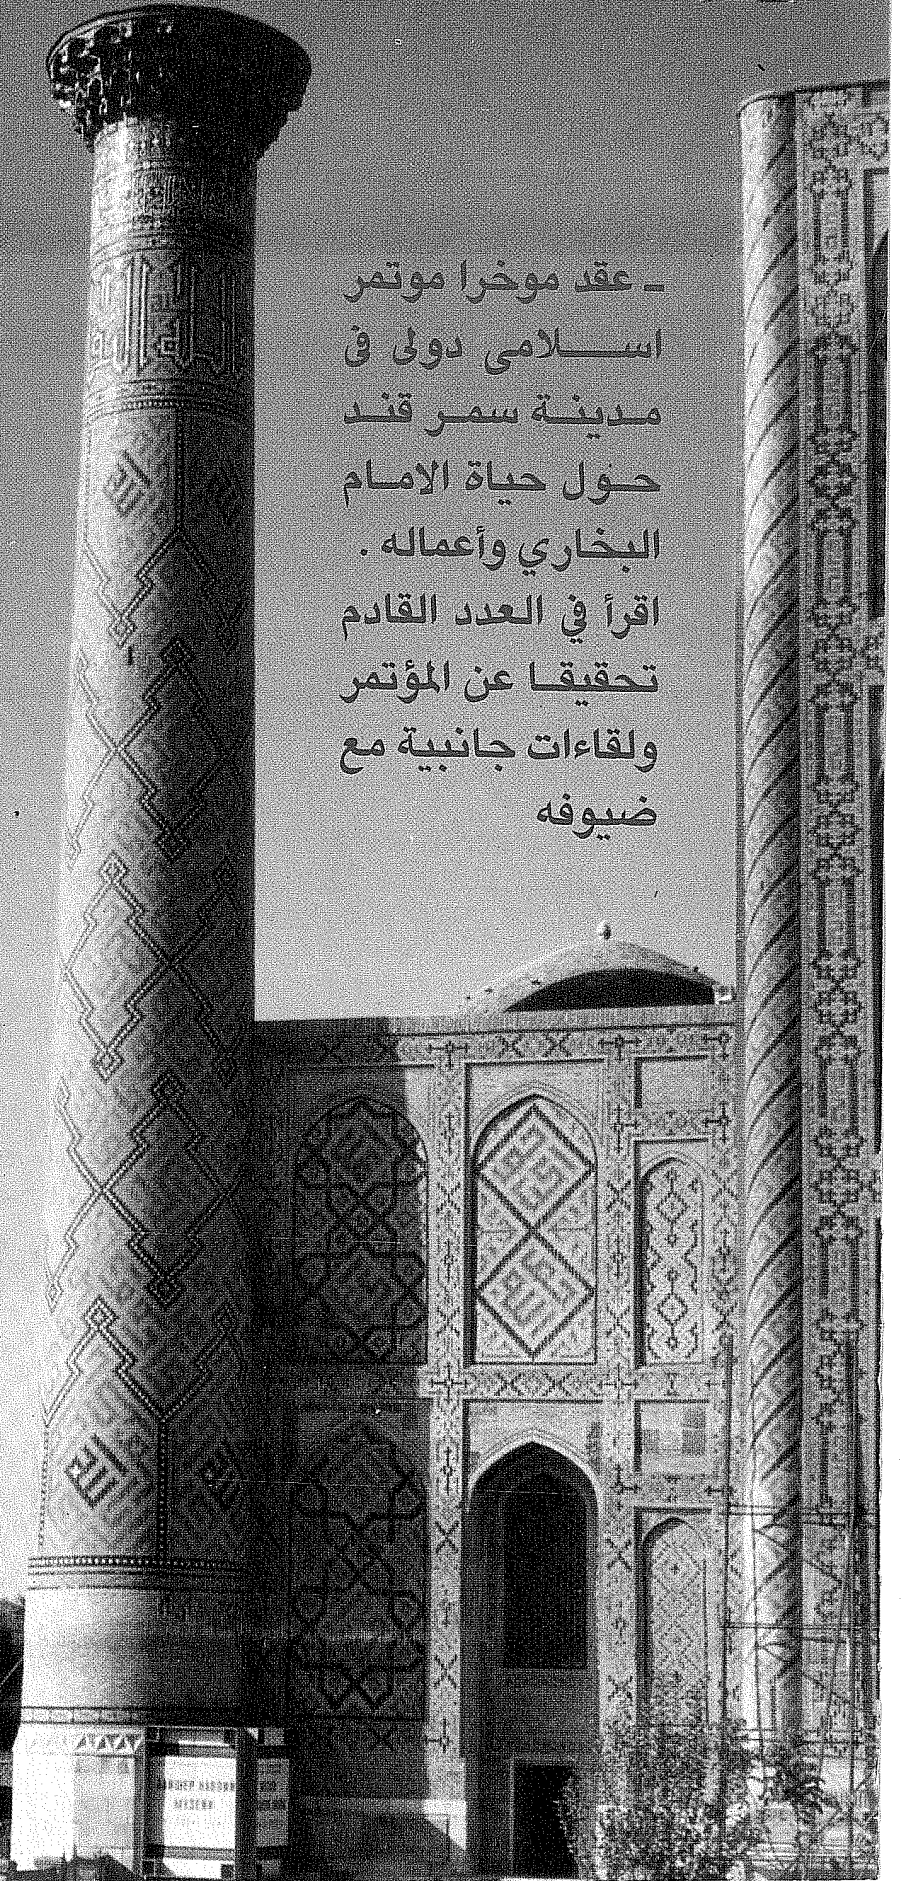 ـ عقد موخرا موتمر
اسـلامى دولى فى
مدينة سمر قند
حول حياة الامام
البخاري وأعماله .
اقرأ في العدد القادم
تحقيقا عن المؤتمر
ولقاءات جانبية مع
ضيوفه
الله
الله